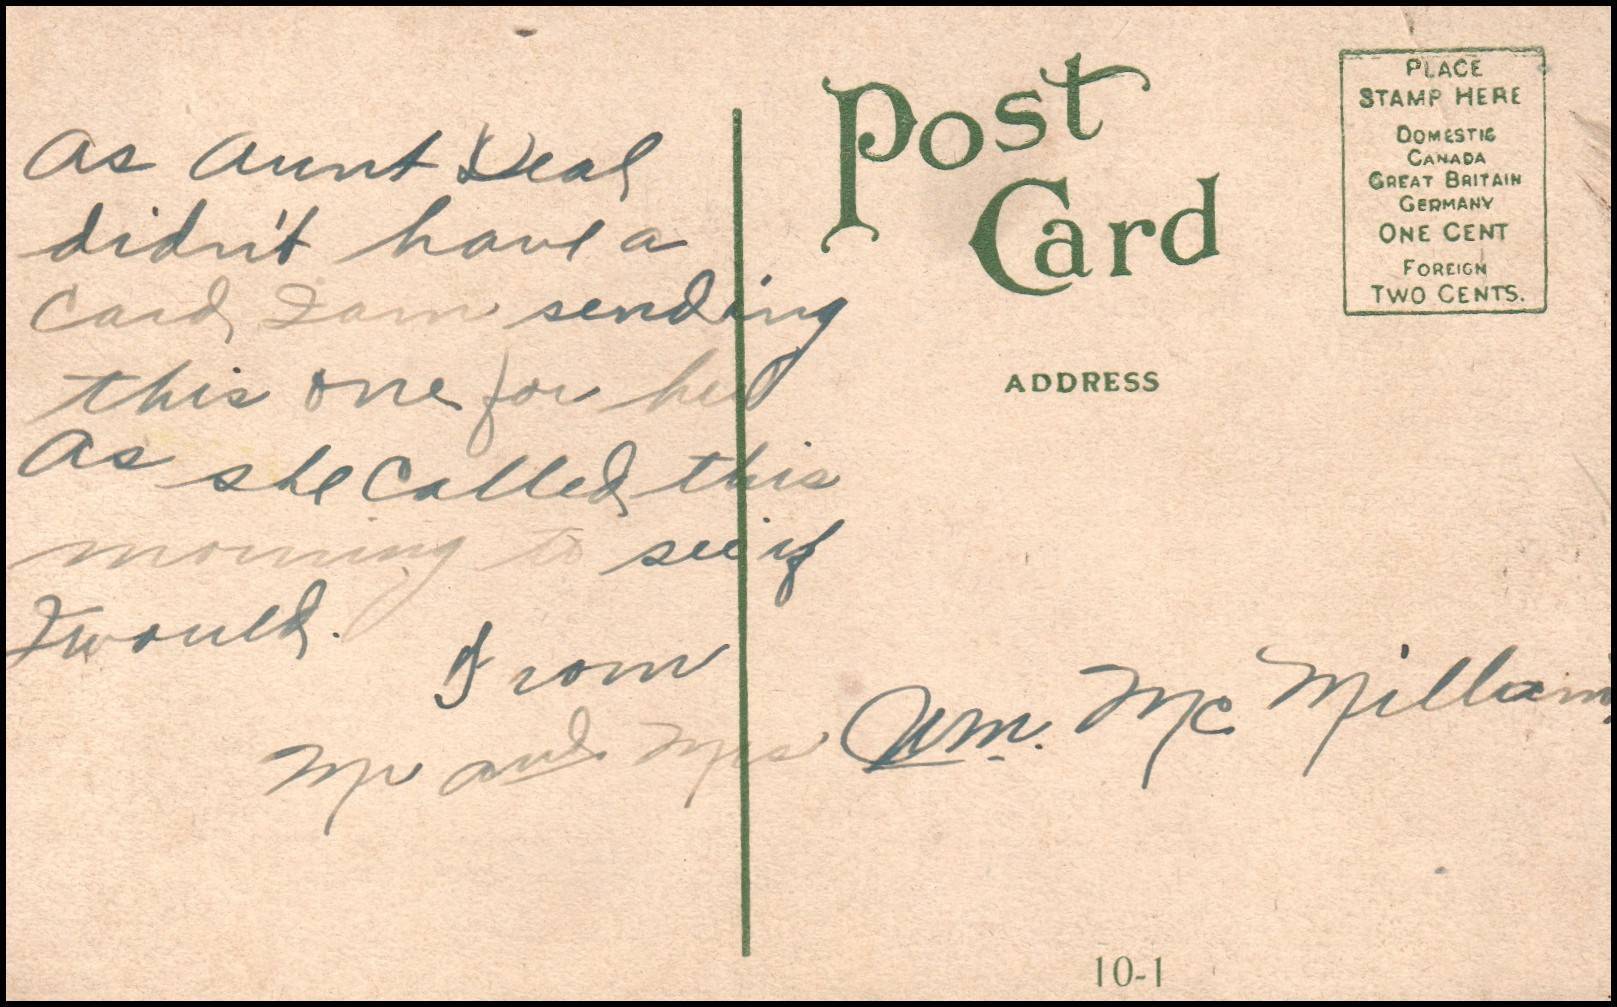 As Aunt Deal
didn't have a
Card, I am sending
this one for her
As she Called this
morning to see if
I would.
From
Mr and Mrs Wm. Mc Milliams
Post
Card
PLACE
STAMP HERE
DOMESTIC
CANADA
GREAT BRITAIN
GERMANY
ONE CENT
FOREIGN
TWO CENTS.
ADDRESS
10-1